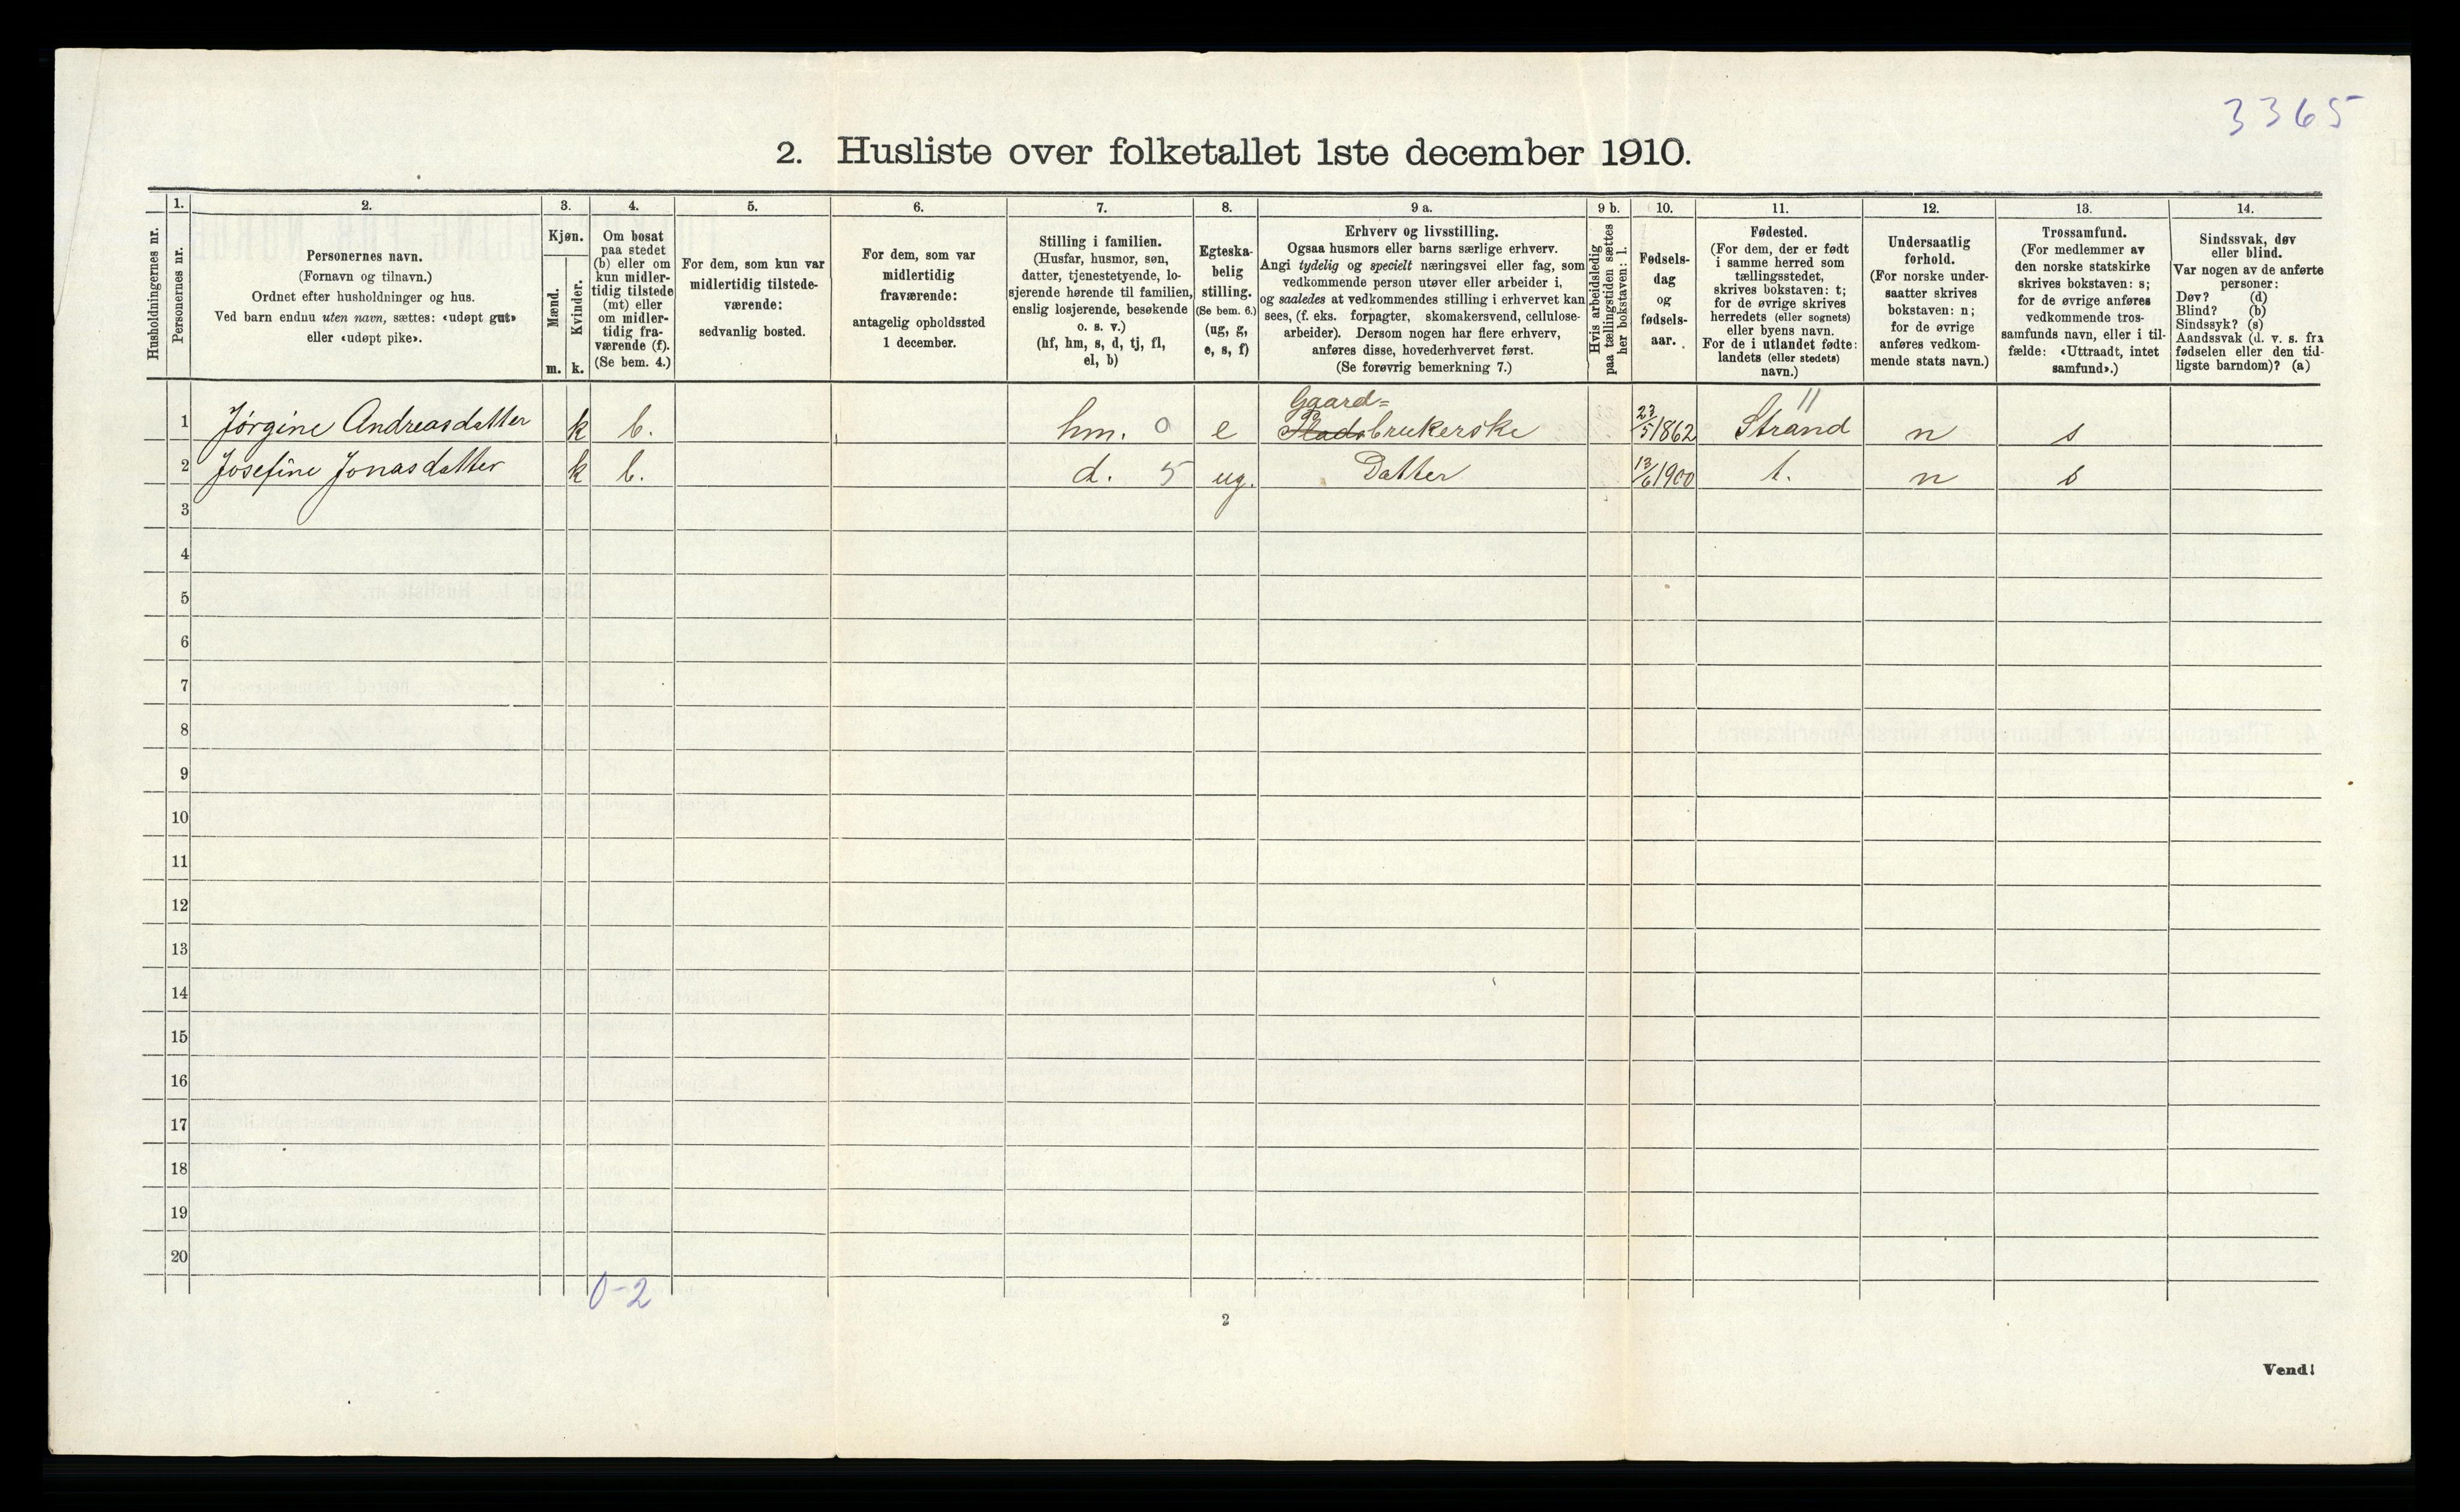 3365
2. Husliste over folketallet 1ste december 1910.
Husholdningernes nr.
1.
Personernes nr.
2.
Personernes navn.
(Fornavn og tilnavn.)
Ordnet efter husholdninger og hus.
Ved barn endnu uten navn, sættes: «udøpt gut»
eller «udøpt pike».
3.
Kjøn.
Mænd.
Kvinder.
m. k.
4.
Om bosat
paa stedet
(b) eller om
kun midler-
tidig tilstede
(mt) eller
om midler-
tidig fra-
værende (f).
(Se bem. 4.)
5.
For dem, som kun var
midlertidig tilstede-
værende:
sedvanlig bosted.
6.
For dem, som var
midlertidig
fraværende:
antagelig opholdssted
1 december.
7.
Stilling i familien.
(Husfar, husmor, søn,
datter, tjenestetyende, lo-
sjerende hørende til familien,
enslig losjerende, besøkende
o. s. v.)
(hf, hm, s, d, tj, fl,
el, b)
8.
Egteska-
belig
stilling.
(Se bem. 6.)
(ug, g,
e, s, f)
9 a.
Erhverv og livsstilling.
Ogsaa husmors eller barns særlige erhverv.
Angi tydelig og specielt næringsvei eller fag, som
vedkommende person utøver eller arbeider i,
og saaledes at vedkommendes stilling i erhvervet kan
sees, (f. eks. forpagter, skomakersvend, cellulose-
arbeider). Dersom nogen har flere erhverv,
anføres disse, hovederhvervet først.
(Se forøvrig bemerkning 7.)
9 b.
Hvis arbeidsledig
paa tællingstiden sættes
her bokstaven: l.
10.
Fødsels-
dag
og
fødsels-
aar.
11.
Fødested.
(For dem, der er født
i samme herred som
tællingsstedet,
skrives bokstaven: t;
for de øvrige skrives
herredets (eller sognets)
eller byens navn.
For de i utlandet fødte:
landets (eller stedets)
navn.)
12.
Undersaatlig
forhold.
(For norske under-
saatter skrives
bokstaven: n;
for de øvrige
anføres vedkom-
mende stats navn.)
13.
Trossamfund.
(For medlemmer av
den norske statskirke
skrives bokstaven: s;
for de øvrige anføres
vedkommende tros-
samfunds navn, eller i til-
fælde: «Uttraadt, intet
samfund».)
14.
Sindssvak, døv
eller blind.
Var nogen av de anførte
personer:
Døv? (d)
Blind? (b)
Sindssyk? (s)
Aandssvak (d. v. s. fra
fødselen eller den tid-
ligste barndom)? (a)
Gaard=
1 Jørgine Andreasdatter k b. hm. 0 e Pladsbrukerske 23/5 1862 Strand " n s
2 Josefine Jonasdatter k b. d. 5 ug. Datter 13/6 1900 t. n s
3
4
5
6
7
8
9
10
11
12
13
14
15
16
17
18
19
20
0-2
2
Vend!